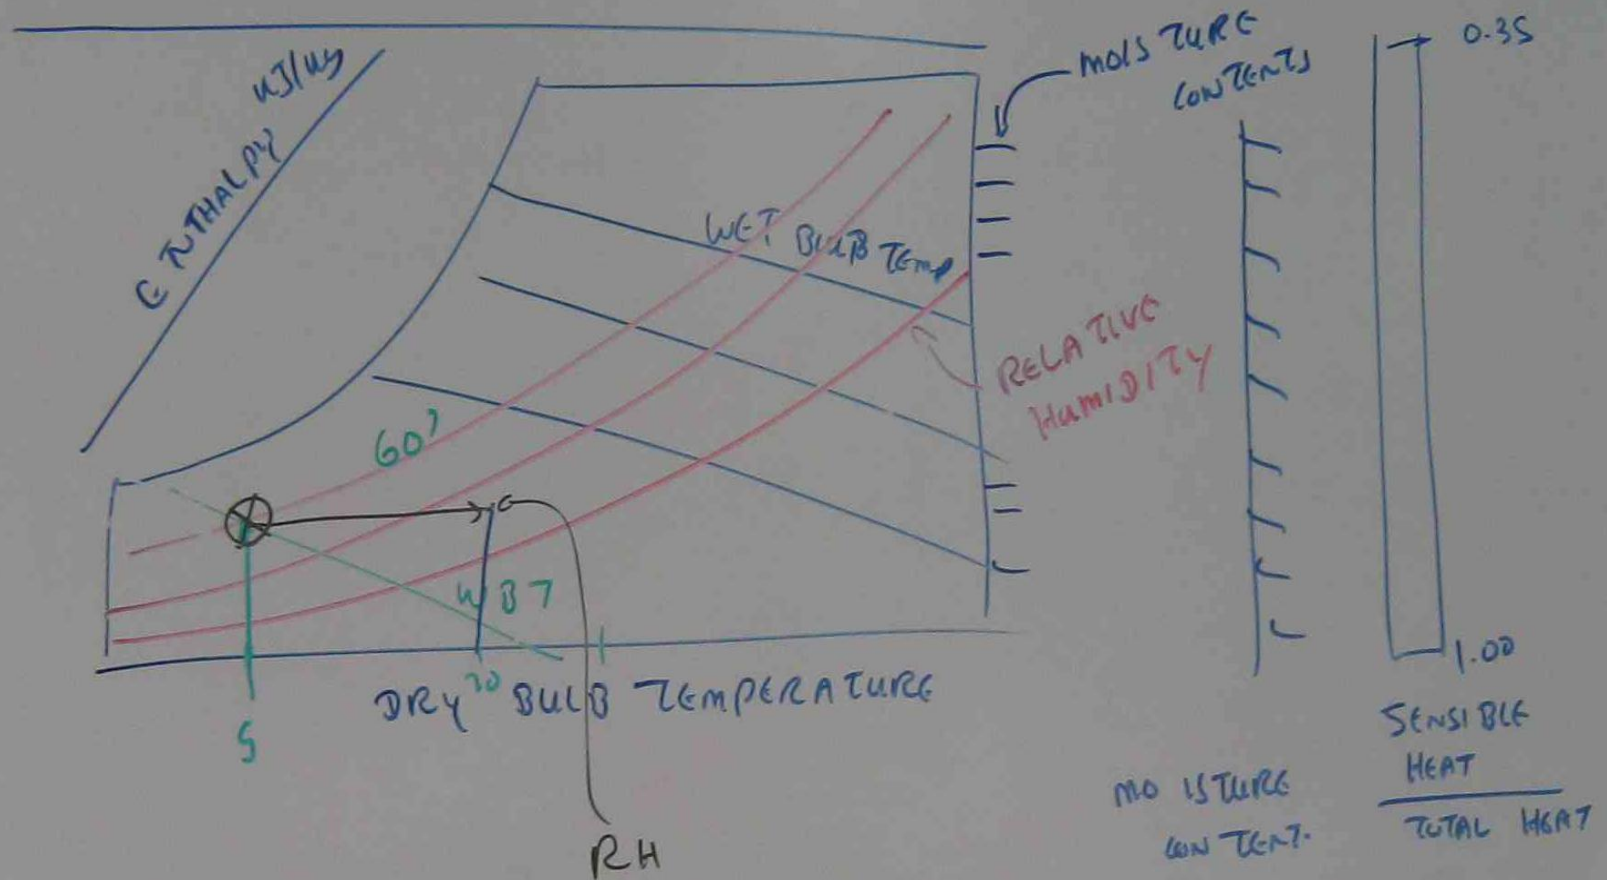 ENTHALPY KJ/Kg
MOISTURE
CONTENTS
0.35
WET BULB TEMP
RELATIVE
HUMIDITY
60
WB 7
DRY BULB TEMPERATURE
5
RH
1.00
MOISTURE
CONTENT.
SENSIBLE
HEAT
TOTAL HEAT